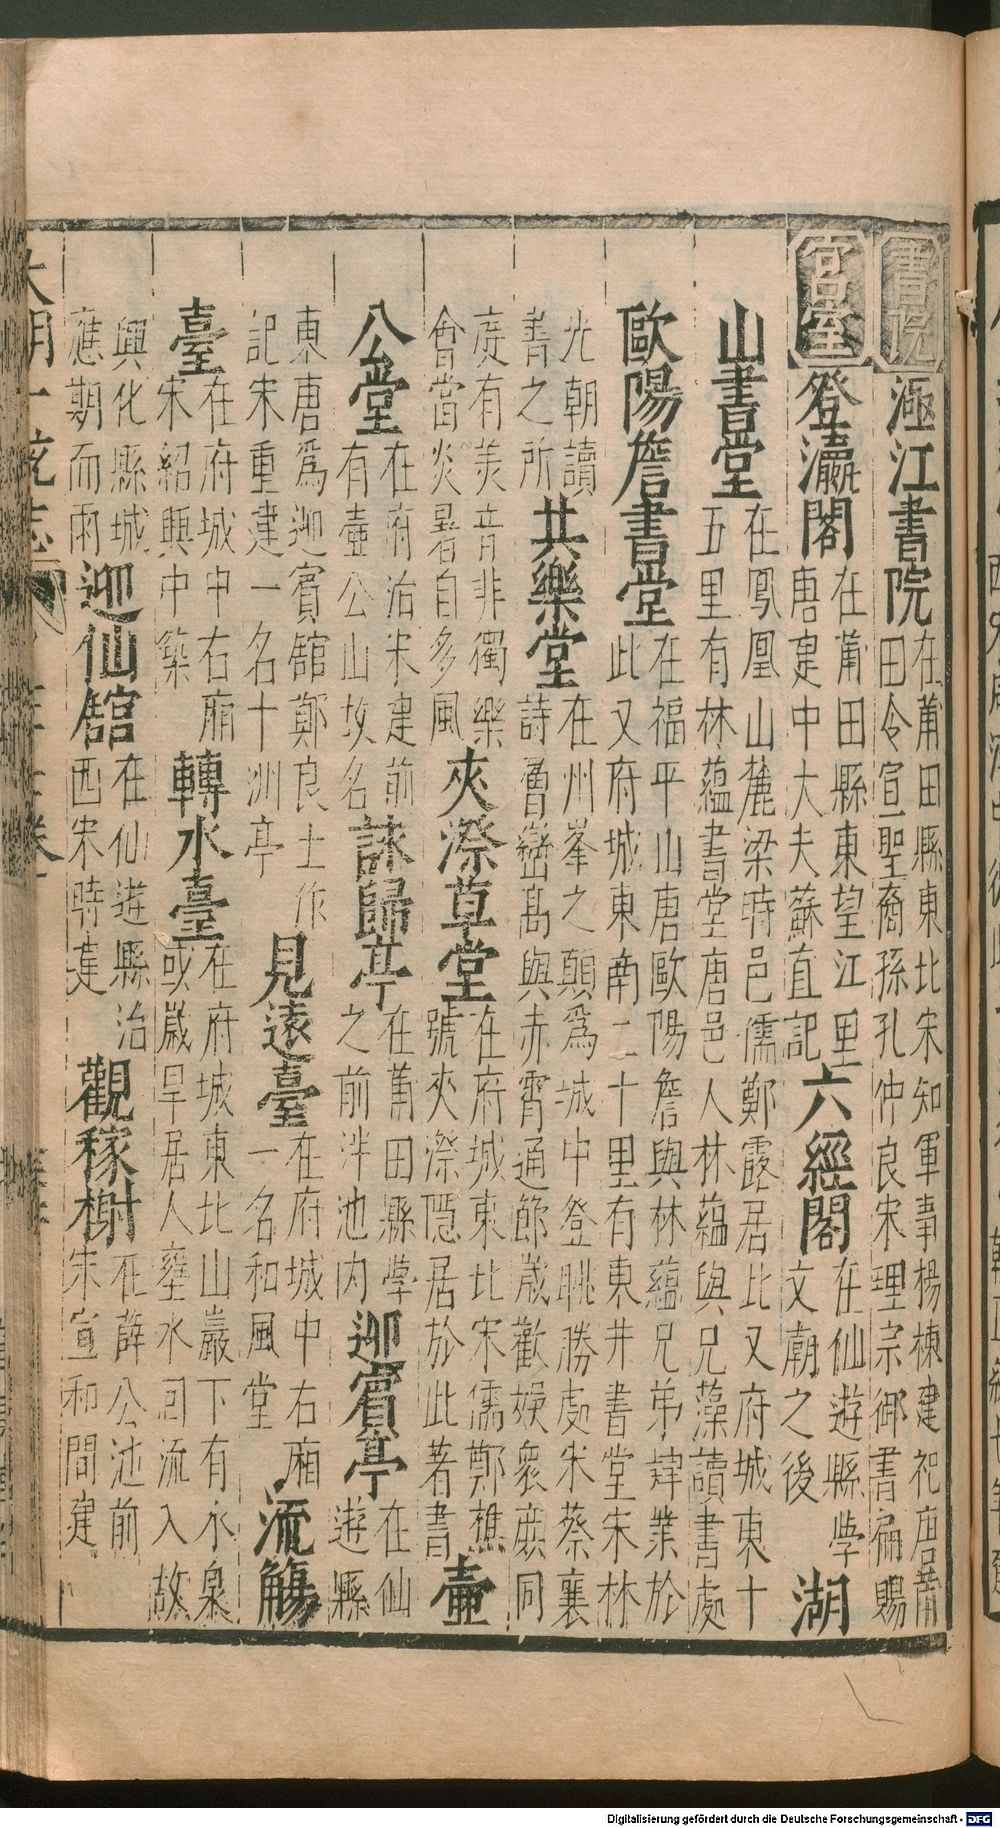 書院 涵江書院 在莆田縣東北宋知軍事楊棟建祀唐莆
田令宣聖裔孫孔仲良宋理宗御書扁賜
宮室 登瀛閣 在莆田縣東望江里
唐建中大夫蘇直記 六經閣 在仙遊縣學
文廟之後 湖
山書堂 在鳳凰山麓梁時邑儒鄭露居此又府城東十
五里有林蘊書堂唐邑人林蘊與兄藻讀書處
歐陽詹書堂 在福平山唐歐陽詹與林蘊兄弟肄業於
此又府城東南二十里有東井書堂宋林
光朝讀
書之所 共樂堂 在州峯之顛為城中登眺勝處宋蔡襄
詩魯嶽髙與赤霄通節歲歡娛衆庶同
庭有美音非獨樂
會當炎暑自多風 夾漈草堂 在府城東北宋儒鄭樵
號夾漈隱居於此著書 壷
公堂 在府治宋建前
有壷公山故名 詠歸亭 在莆田縣學
之前泮池内 迎賓亭 在仙
遊縣
東唐爲迎賓舘鄭良士作
記宋重建一名十洲亭 見遠臺 在府城中右廂
一名和風堂 流觴
臺 在府城中右廂
宋紹興中築 轉水臺 在府城東北山巖下有水泉
或歲旱居人壅水囘流入故
興化縣城
應期而雨 迎仙舘 在仙遊縣治
西宋時建 觀稼榭 在薛公池前
宋宣和間建
大明一統志
Digitalisierung gefördert durch die Deutsche Forschungsgemeinschaft - DFG